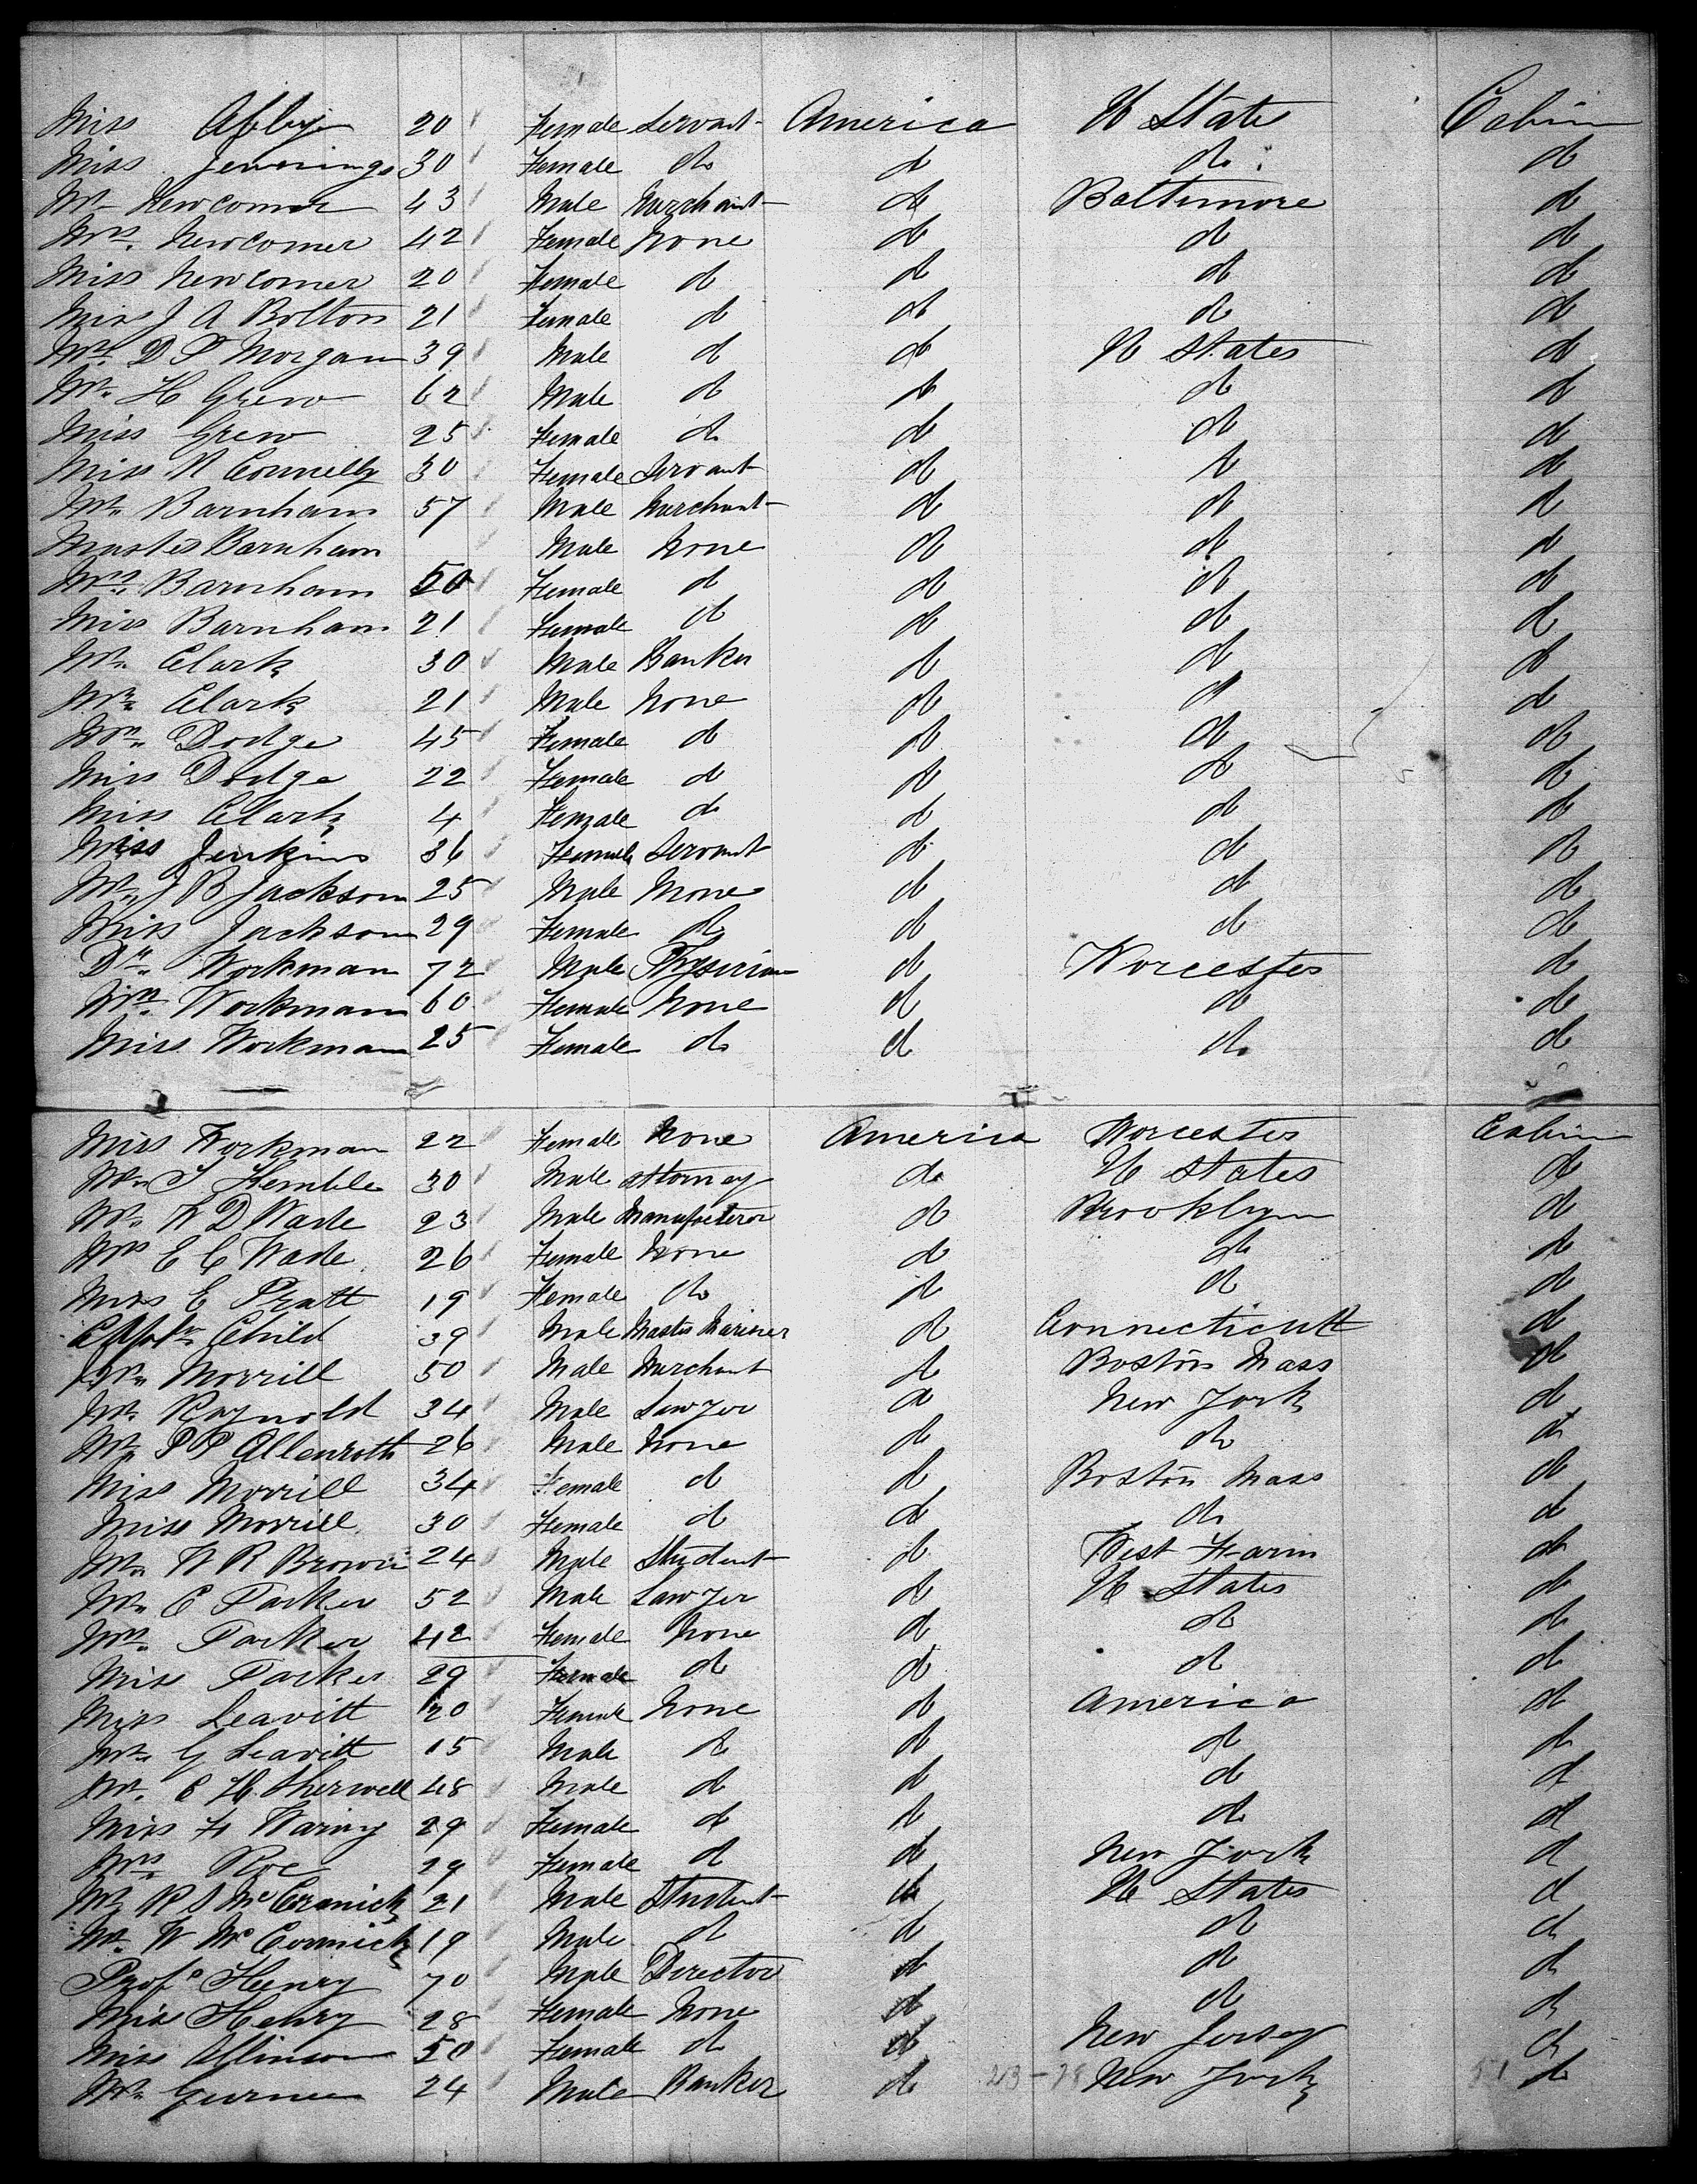 Miss 20 Female Servant America U States Cabin
Miss Jennings 30 Female do do do do
Mr Newcomer 43 Male Merchant do Baltimore do
Mrs. Newcomer 42 Female None do do do
Miss Newcomer 20 Female do do do do
Miss J A Bolton 21 Female do do do do
Mr. D P Morgan 39 Male do do U States do
Mr. H Grew 62 Male do do do do
Miss Grew 25 Female do do do do
Miss N Connelly 30 Female Servant do do do
Mr. Barnham 57 Male Merchant do do do
Master Barnham Male None do do do
Mrs. Barnham 50 Female do do do do
Miss Barnham 21 Female do do do do
Mr. Clark 30 Male Banker do do do
Mr. Clark 21 Male None do do do
Mrs. Dodge 45 Female do do do do
Miss Dodge 22 Female do do do do
Miss Clark 4 Female do do do do
Miss Jenkins 36 Female Servant do do do
Mr. J B Jackson 25 Male None do do do
Miss Jackson 29 Female do do do do
Dr. Workman 72 Male Physician do Worcester do
Mrs. Workman 60 Female None do do do
Miss Workman 25 Female do do do do
Miss Workman 22 Female None America Worcester Cabin
Mr. T Hemble 30 Male Attorney do U States do
Mr. W D Wade 23 Male do Brooklyn do
Mrs E C Wade 26 Female None do do do
Miss E Pratt 19 Female do do do do
Child 39 Male Master Mariner do Connecticutt do
Mr. Morrill 50 Male Merchant do Boston Mass do
Mr. Raynold 34 Male Lawyer do New York do
Mr. P P Allenroth 26 Male None do do do
Miss Morrill 34 Female do do Boston Mass do
Miss Morrill 30 Female do do do do
Mr. W R Brown 24 Male Student do West Farm do
Mr. C Parker 52 Male Lawyer do U States do
Mrs. Parker 42 Female None do do do
Miss Parker 29 Female do do do do
Miss Leavitt 20 Female None do America do
Mr. G Leavitt 15 Male do do do do
Mr. C H Sherwell 48 Male do do do do
Miss F Waring 29 Female do do do do
Mrs. Roe 29 Female do do New York do
Mr. R S McCormick 21 Male Student do U States do
Mr. W McCormick 19 Male do do do do
Profr Henry 70 Male Director do do do
Miss Henry 28 Female None do do do
Miss Allinson 50 Female do do New Jersey do
Mr. Gurnee 24 Male Banker do New York do